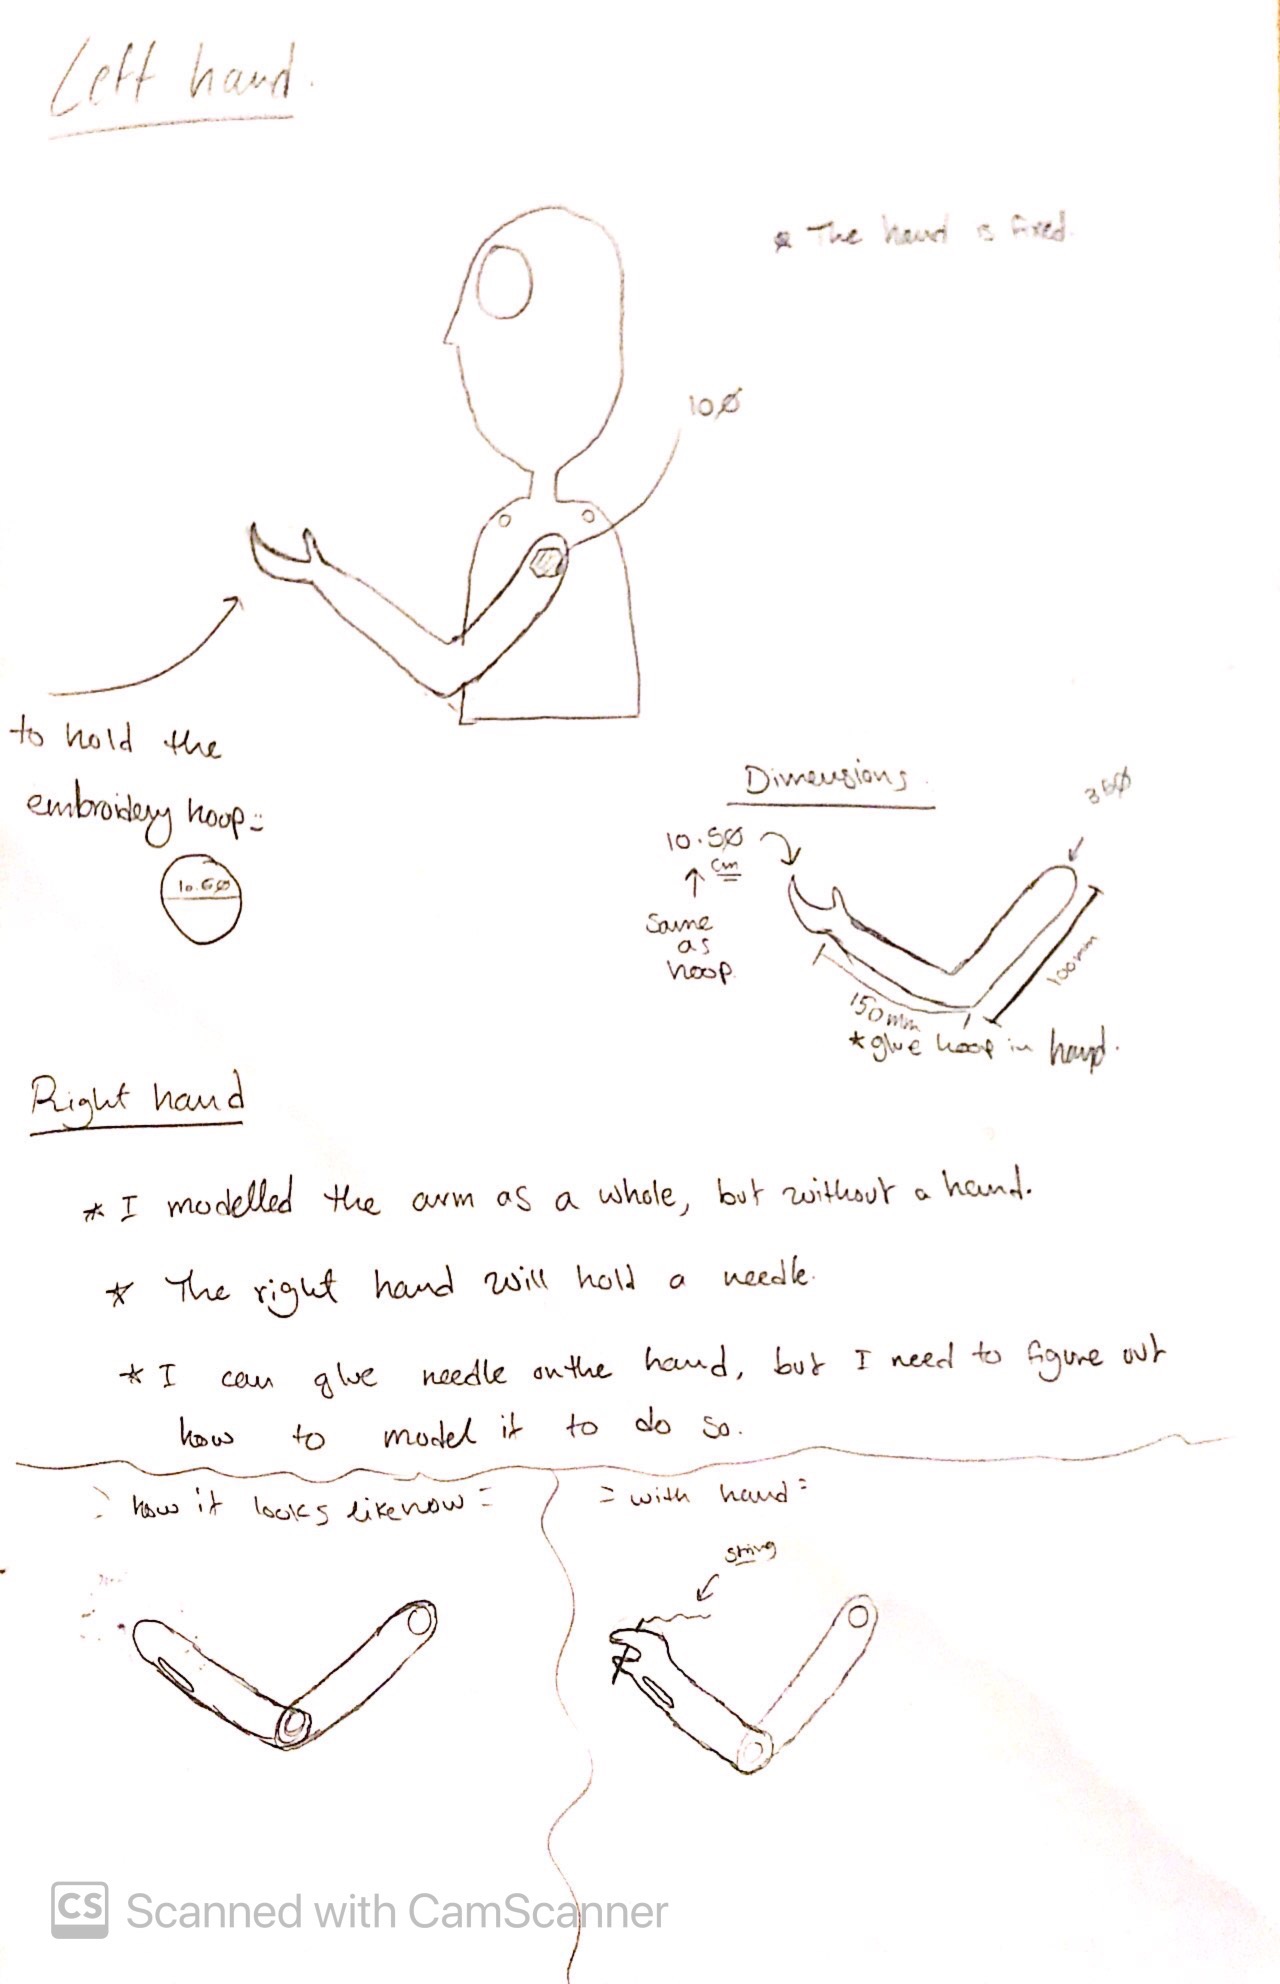 Left hand.
* The hand is fixed.
10Ø
to hold the
embroidery hoop:-
Dimensions.
10.5Ø
cm
Same
as
hoop.
100mm
150mm
*glue hoop in hand.
Right hand
* I modelled the arm as a whole, but without a hand.
* The right hand will hold a needle.
* I can glue needle on the hand, but I need to figure out
how to model it to do so.
how it looks like now =
= with hand =
string
CS Scanned with CamScanner